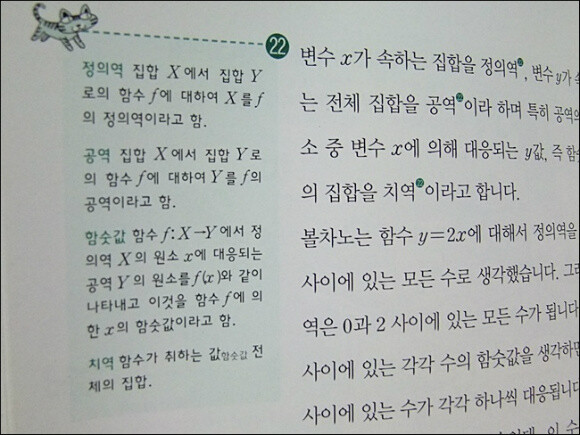 22
정의역 집합 X에서 집합 Y
로의 함수 f에 대하여 X를 f
의 정의역이라고 함.
공역 집합 X에서 집합 Y로
의 함수 f에 대하여 Y를 f의
공역이라고 함.
함숫값 함수 f: X→Y에서 정
의역 X의 원소 x에 대응되는
공역 Y의 원소를 f(x)와 같이
나타내고 이것을 함수 f에 의
한 x의 함숫값이라고 함.
치역 함수가 취하는 값함숫값 전
체의 집합.
변수 x가 속하는 집합을 정의역, 변수 y가 속
는 전체 집합을 공역이라 하며 특히 공역의
소 중 변수 x에 의해 대응되는 y값, 즉 함숫
의 집합을 치역이라고 합니다.
볼차노는 함수 y=2x에 대해서 정의역을
사이에 있는 모든 수로 생각했습니다. 그러
역은 0과 2 사이에 있는 모든 수가 됩니다
사이에 있는 각각 수의 함숫값을 생각하면
사이에 있는 수가 각각 하나씩 대응됩니다